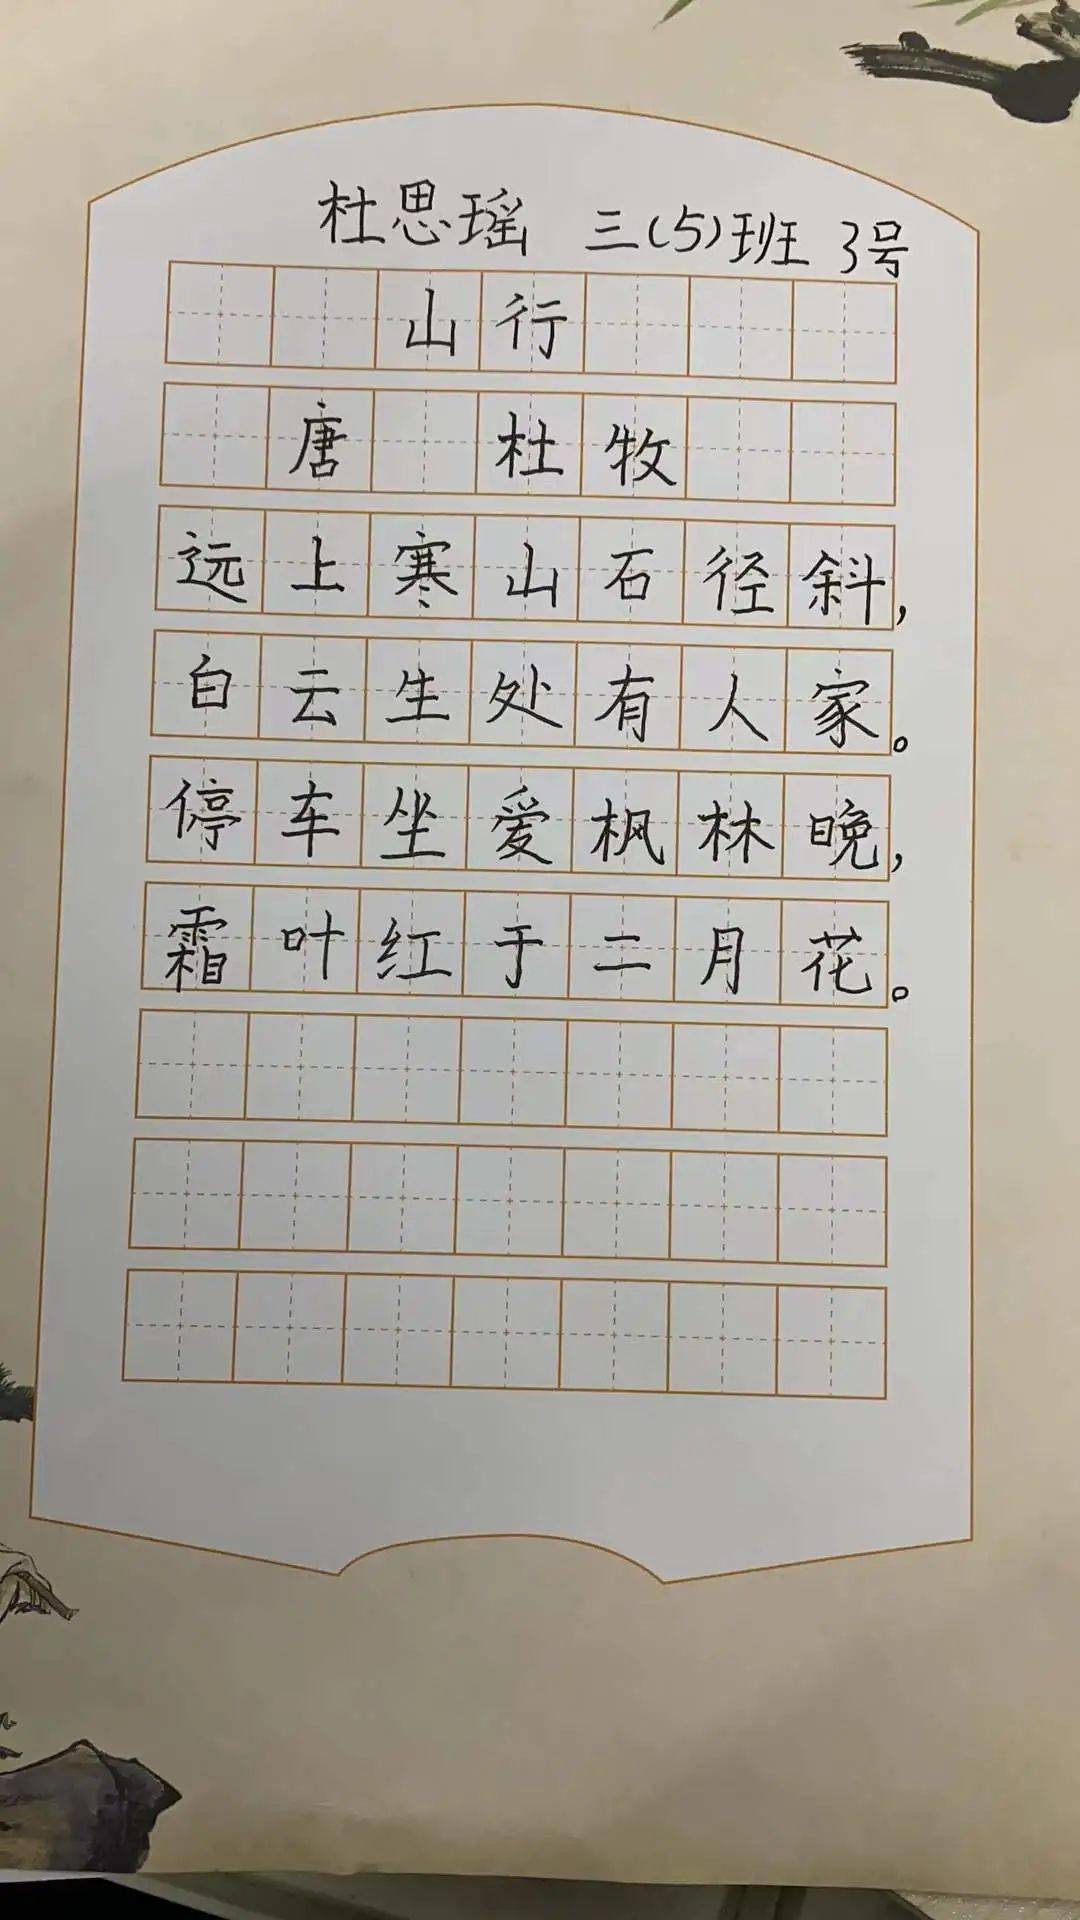 杜思瑶 三(5)班 3号
山行
唐 杜牧
远上寒山石径斜,
白云生处有人家。
停车坐爱枫林晚,
霜叶红于二月花。